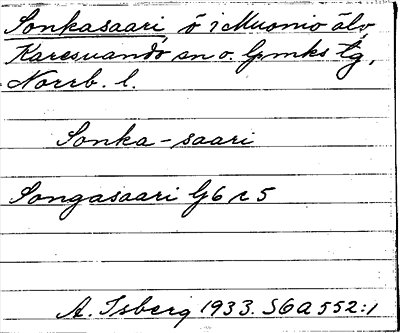 Sonkasaari, ö i Muonio älv,
Karesuando sn o. lpmks tg,
Norrb. l.
Sonka-saari
Songasaari G6 r 5
A. Isberg 1933. S6A552:1